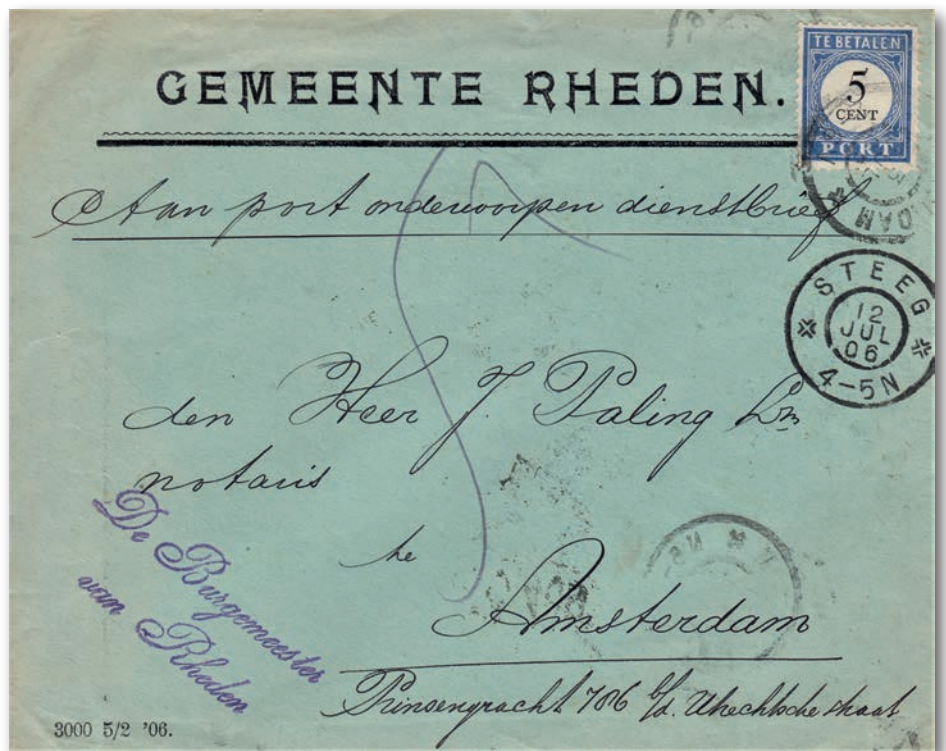 GEMEENTE RHEDEN.
TE BETALEN
5
CENT
PORT
DAM
Aan port onderworpen dienstbrief
STEEG
12
JUL
06
4-5N
den Heer J. Paling Lzn
notaris
te
Amsterdam
Prinsengracht 786 b/d. Utrechtsche straat
De Burgemeester
van Rheden
3000 5/2 '06.